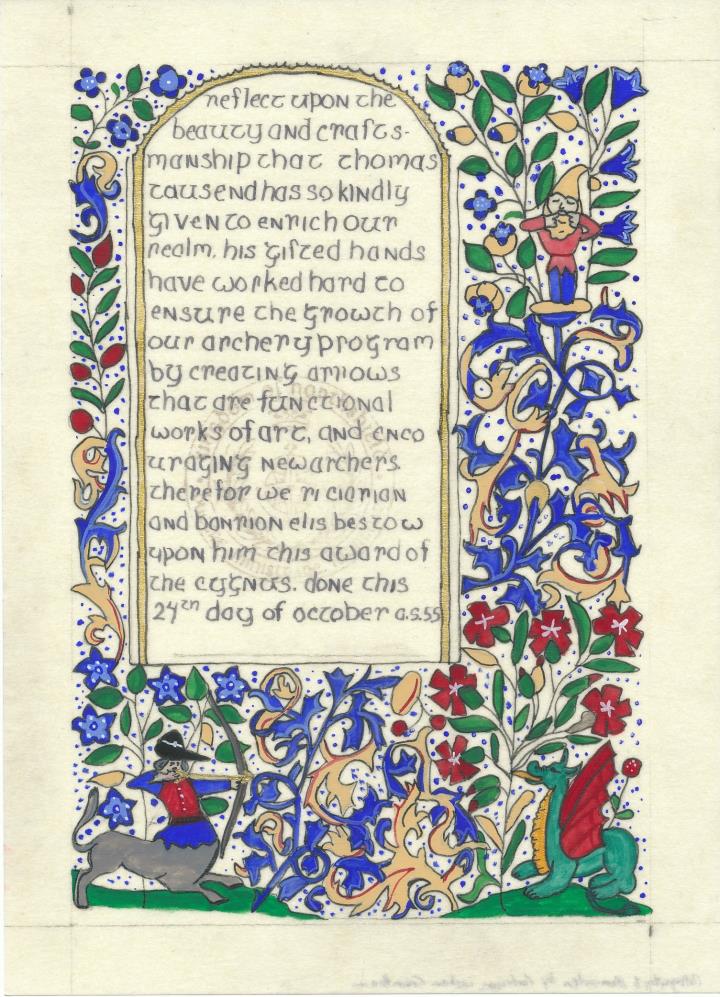 reflect upon the
beauty and crafts-
manship that thomas
tausend has so kindly
given to enrich our
realm. his gifted hands
have worked hard to
ensure the growth of
our archery program
by creating arrows
that are functional
works of art, and enco
uraging new archers.
therefor we ri ciarian
and banrion elis bestow
upon him this award of
the cygnus. done this
24th day of october a.s.55